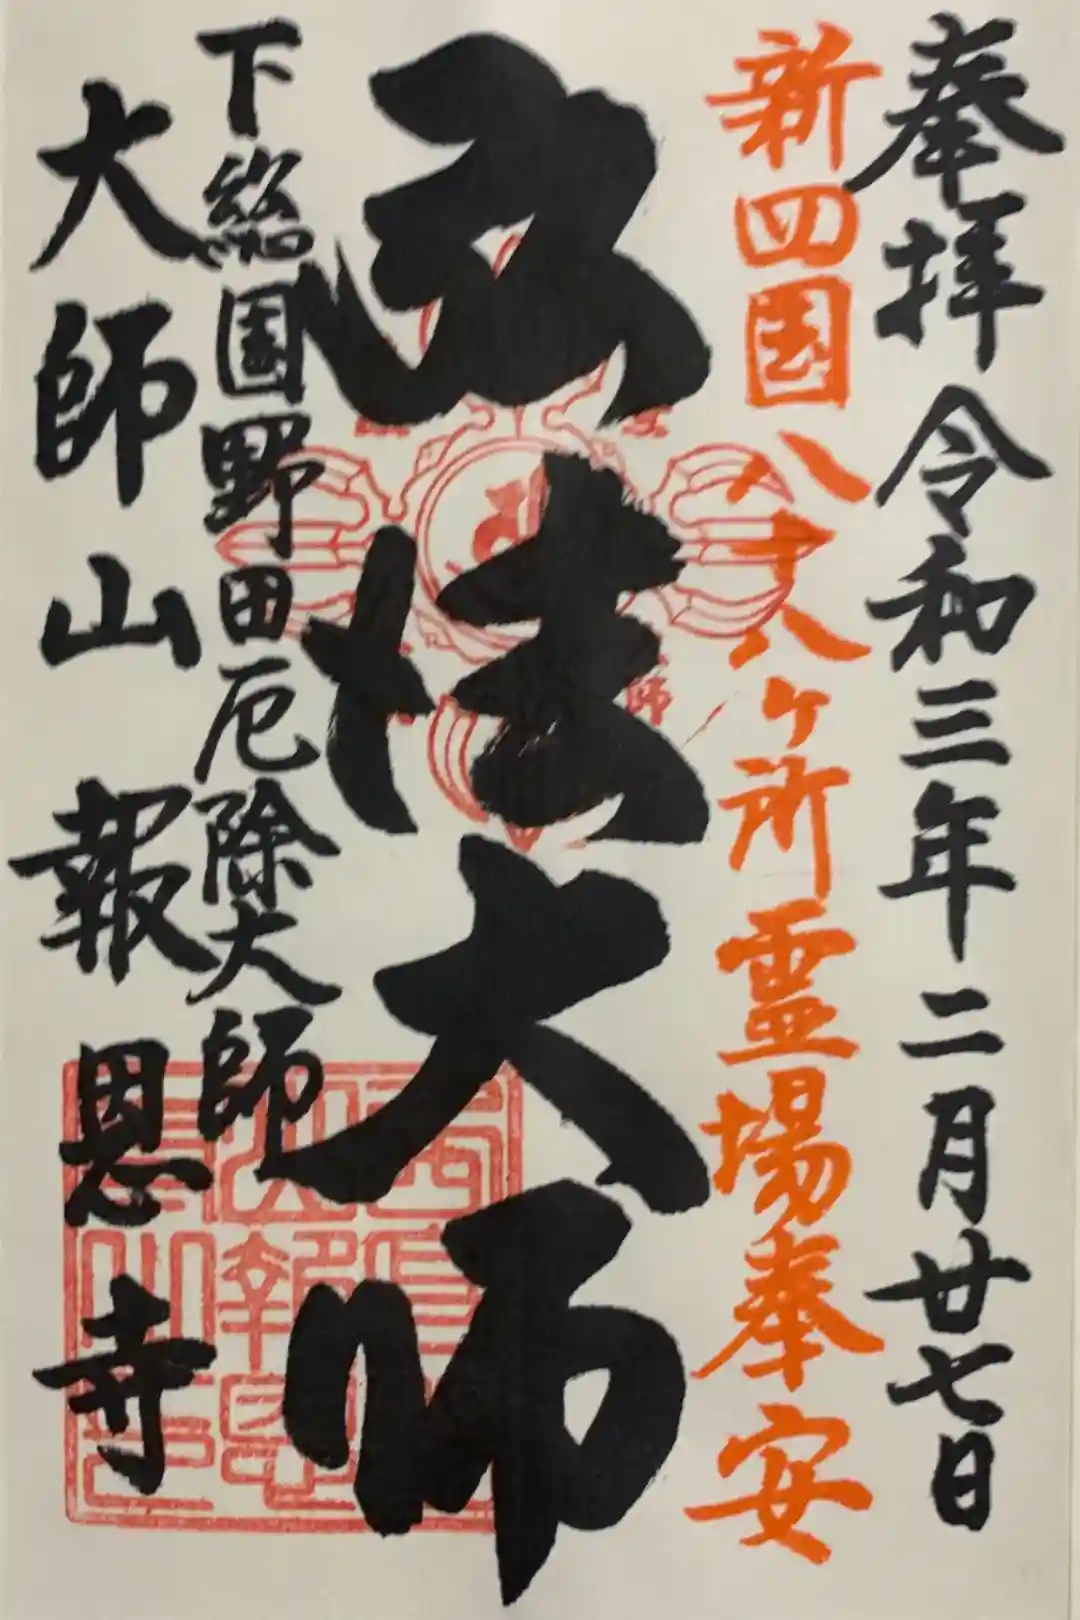 奉拝 令和三年二月廿七日
新四国八十八ヶ所霊場奉安
弘法大師
下総国野田厄除大師
大師山 報恩寺